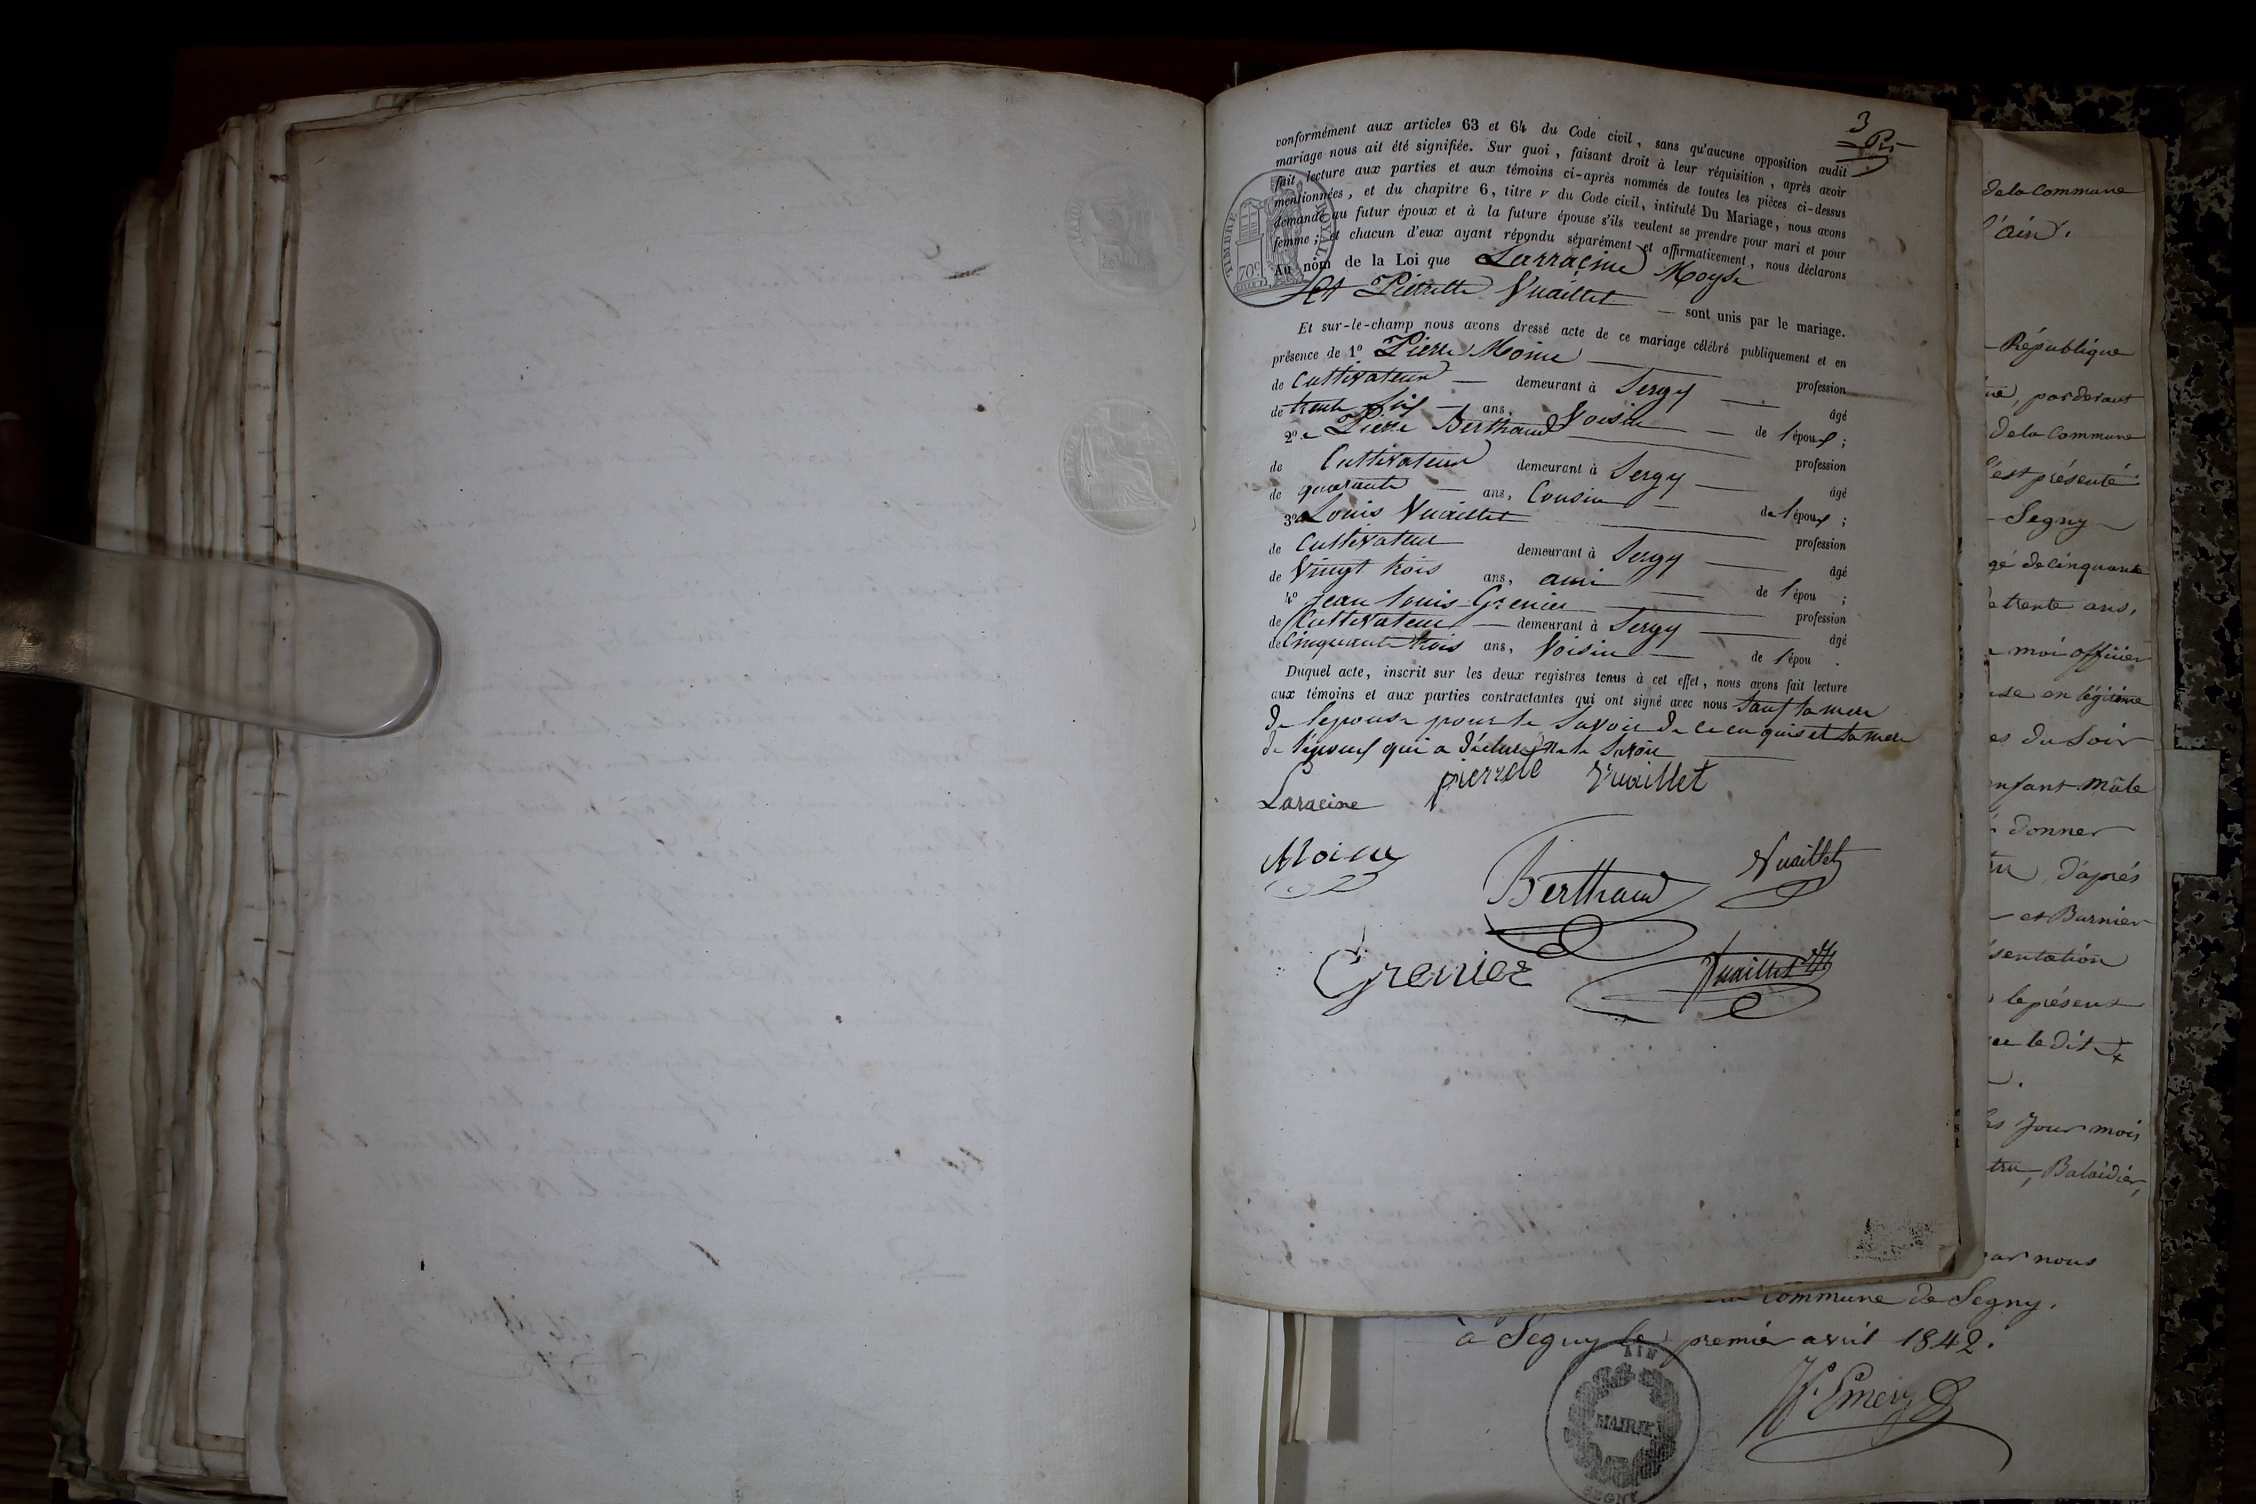 3
conformément aux articles 63 et 64 du Code civil, sans qu'aucune opposition audit
mariage nous ait été signifiée. Sur quoi, faisant droit à leur réquisition, après avoir
fait lecture aux parties et aux témoins ci-après nommés de toutes les pièces ci-dessus
mentionnées, et du chapitre 6, titre v du Code civil, intitulé Du Mariage, nous avons
demandé au futur époux et à la future épouse s'ils veulent se prendre pour mari et pour
femme; et chacun d'eux ayant répondu séparément et affirmativement, nous déclarons
Au nom de la Loi que Larracine Moyse
Et Pierrette Vuaillet — sont unis par le mariage.
Et sur-le-champ nous avons dressé acte de ce mariage célébré publiquement et en
présence de 1º Pierre Moine — profession
de Cultivateur — demeurant à Sergy — âgé
de trente six — ans, Voisin — de l'époux;
2º Pierre Berthaud — profession
de Cultivateur demeurant à Sergy — âgé
de quarante — ans, Cousin — de l'époux;
3º Louis Vuaillet — profession
de Cultivateur demeurant à Sergy — âgé
de Vingt trois ans, ami — de l'épou ;
4º Jean Louis Grenier — profession
de Cultivateur — demeurant à Sergy — âgé
de Cinquante trois ans, Voisin — de l'épou .
Duquel acte, inscrit sur les deux registres tenus à cet effet, nous avons fait lecture
aux témoins et aux parties contractantes qui ont signé avec nous sauf la mere
de l'epouse pour le savoir de ce en quis et la mere
de l'époux qui a déclaré ne le savoir
Laracine
pierrete Vuaillet
Moine
Berthaud
Vuaillet
Grenier
Vuaillet
TIMBRE ROYAL
70c
de la Commune
l'ain.
République
par devant
de la Commune
s'est présenté
Segny
gé de cinquante
trente ans,
moi officier
en légitime
du Soir
enfant mâle
donner
d'après
et Burnier
le présent
le dit
Jour mois
Balaidier,
par nous
commune de Segny.
à Segny le premier avril 1842.
AIN
MAIRIE
SEGNY